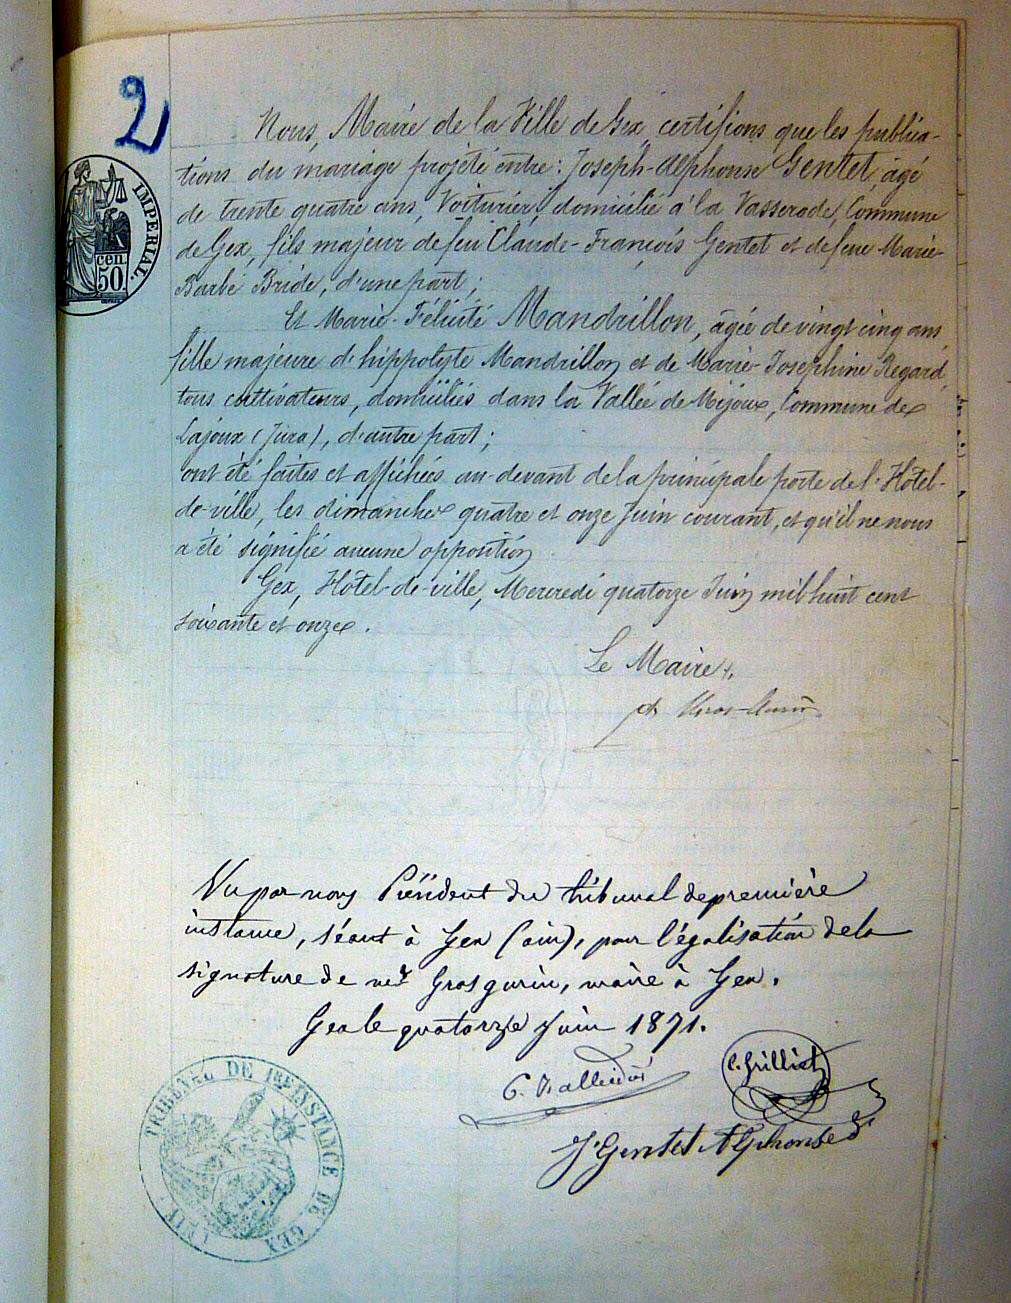 2
IMPERIAL.
cen.
50.
Nous, Maire de la Ville de Gex, certifions que les publica-
tions du mariage projeté entre: Joseph-Alphonse Gentet, âgé
de trente quatre ans, Voiturier, domicilié à la Vasserode, Commune
de Gex, fils majeur de feu Claude-François Gentet et de feue Marie
Barbe Bride, d'une part;
Et Marie-Félicité Mandrillon, âgée de vingt cinq ans,
fille majeure d'hippolyte Mandrillon et de Marie-Josephine Regard,
tous cultivateurs, domiciliés dans la Vallée de Mijoux, Commune de
Lajoux (Jura), d'autre part;
ont été faites et affichées au-devant de la principale porte de l'Hôtel-
de-ville, les dimanches quatre et onze Juin courant, et qu'il ne nous
a été signifié aucune opposition.
Gex, Hôtel-de-ville, Mercredi quatorze Juin mil huit cent
soixante et onze.
Le Maire,
Vu par nous Président du tribunal de première
instance, séant à Gex (ain), pour légalisation de la
signature de mr Grosgurin, maire à Gex.
Gex le quatorze Juin 1871.
C. Grilliet
J. Gentet Alphonse
TRIBUNAL DE 1ERE INSTANCE DE GEX (AIN)